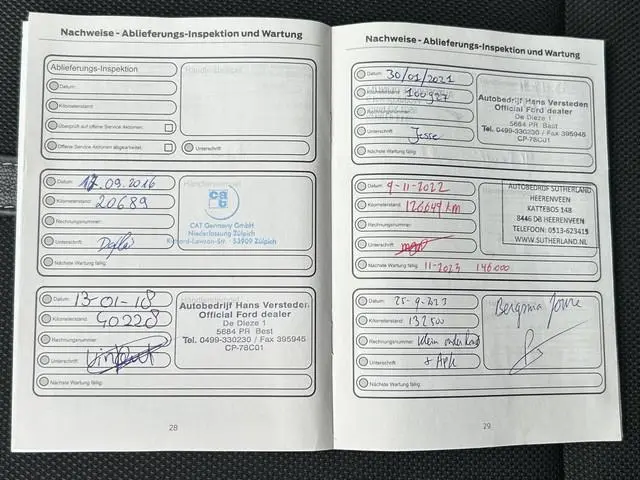 Nachweise - Ablieferungs-Inspektion und Wartung
Ablieferungs-Inspektion
Händlerstempel
Datum:
Kilometerstand:
Überprüft auf offene Service Aktionen:
Offene Service Aktionen abgearbeitet:
Unterschrift:
Datum: 12.09.2016
Kilometerstand: 20689
Rechnungsnummer:
Unterschrift:
Nächste Wartung fällig:
Händlerstempel
CAT Germany GmbH
Niederlassung Zülpich
Richard-Lawson-Str. · 53909 Zülpich
Datum: 13-01-18
Kilometerstand: 40228
Rechnungsnummer:
Unterschrift:
Nächste Wartung fällig:
Autobedrijf Hans Versteden
Official Ford dealer
De Dieze 1
5684 PR Best
Tel. 0499-330230 / Fax 395945
CP-78C01
28
Nachweise - Ablieferungs-Inspektion und Wartung
Datum: 30/01/2021
Kilometerstand: 100927
Rechnungsnummer:
Unterschrift: Jesse
Nächste Wartung fällig:
Autobedrijf Hans Versteden
Official Ford dealer
De Dieze 1
5684 PR Best
Tel. 0499-330230 / Fax 395945
CP-78C01
Datum: 9-11-2022
Kilometerstand: 126649 km
Rechnungsnummer:
Unterschrift:
Nächste Wartung fällig: 11-2023 146000
AUTOBEDRIJF SUTHERLAND
HEERENVEEN
KATTEBOS 148
8446 DB HEERENVEEN
TELEFOON: 0513-623415
WWW.SUTHERLAND.NL
Datum: 25-9-2023
Kilometerstand: 132500
Rechnungsnummer: Klein onderhoud
Unterschrift: + Apk
Nächste Wartung fällig:
Bergsma Joure
29